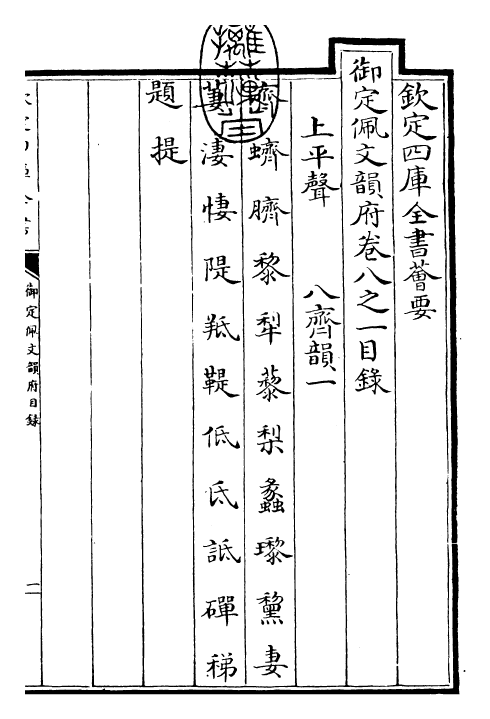 欽定四庫全書薈要
御定佩文韻府卷八之一目錄
上平聲　八齊韻一
齊蠐臍黎犁藜梨蠡瓈黧妻
萋淒悽隄羝鞮低氐詆磾稊
題提
御定佩文韻府目錄
一